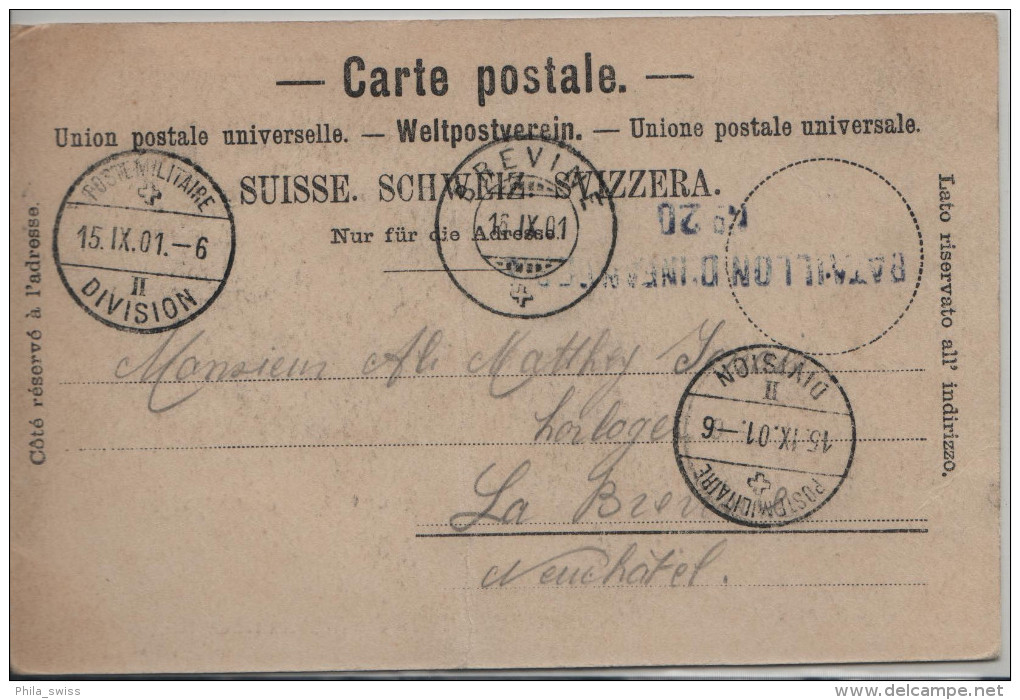 — Carte postale. —
Union postale universelle. — Weltpostverein. — Unione postale universale.
SUISSE. SCHWEIZ. SVIZZERA.
Nur für die Adresse.
Côté réservé à l'adresse.
Lato riservato all' indirizzo.
POSTE MILITAIRE
15.IX.01.–6
II
DIVISION
BREVINE
15.IX.01
BATAILLON D'INFANTERIE
No 20
Monsieur Ali Matthey
horloger
La Brévine
Neuchâtel.
POSTE MILITAIRE
15.IX.01.–6
II
DIVISION
Phila_swiss
delcampe.net